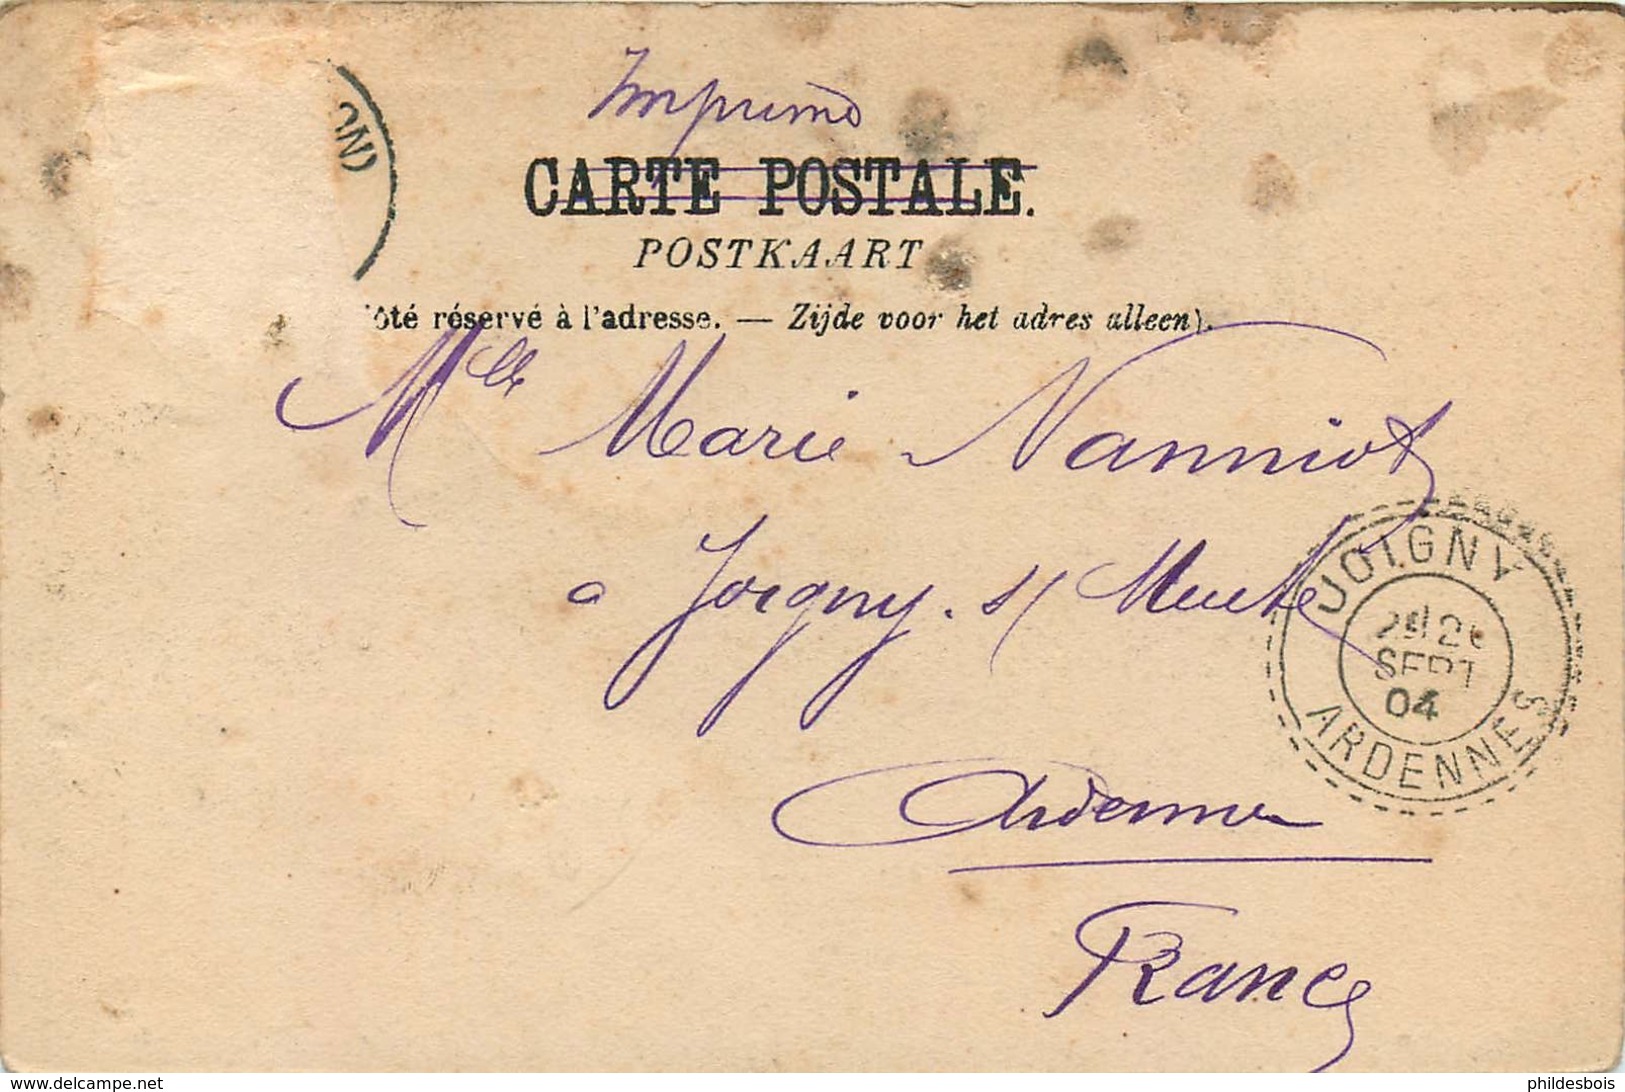 Imprimé
CARTE POSTALE.
POSTKAART
ôté réservé à l'adresse. — Zijde voor het adres alleen).
Mlle Marie Nanniot
à Joigny s/ Meuse
JOIGNY
SEPT
04
ARDENNES
Ardennes
France
www.delcampe.net
phildesbois